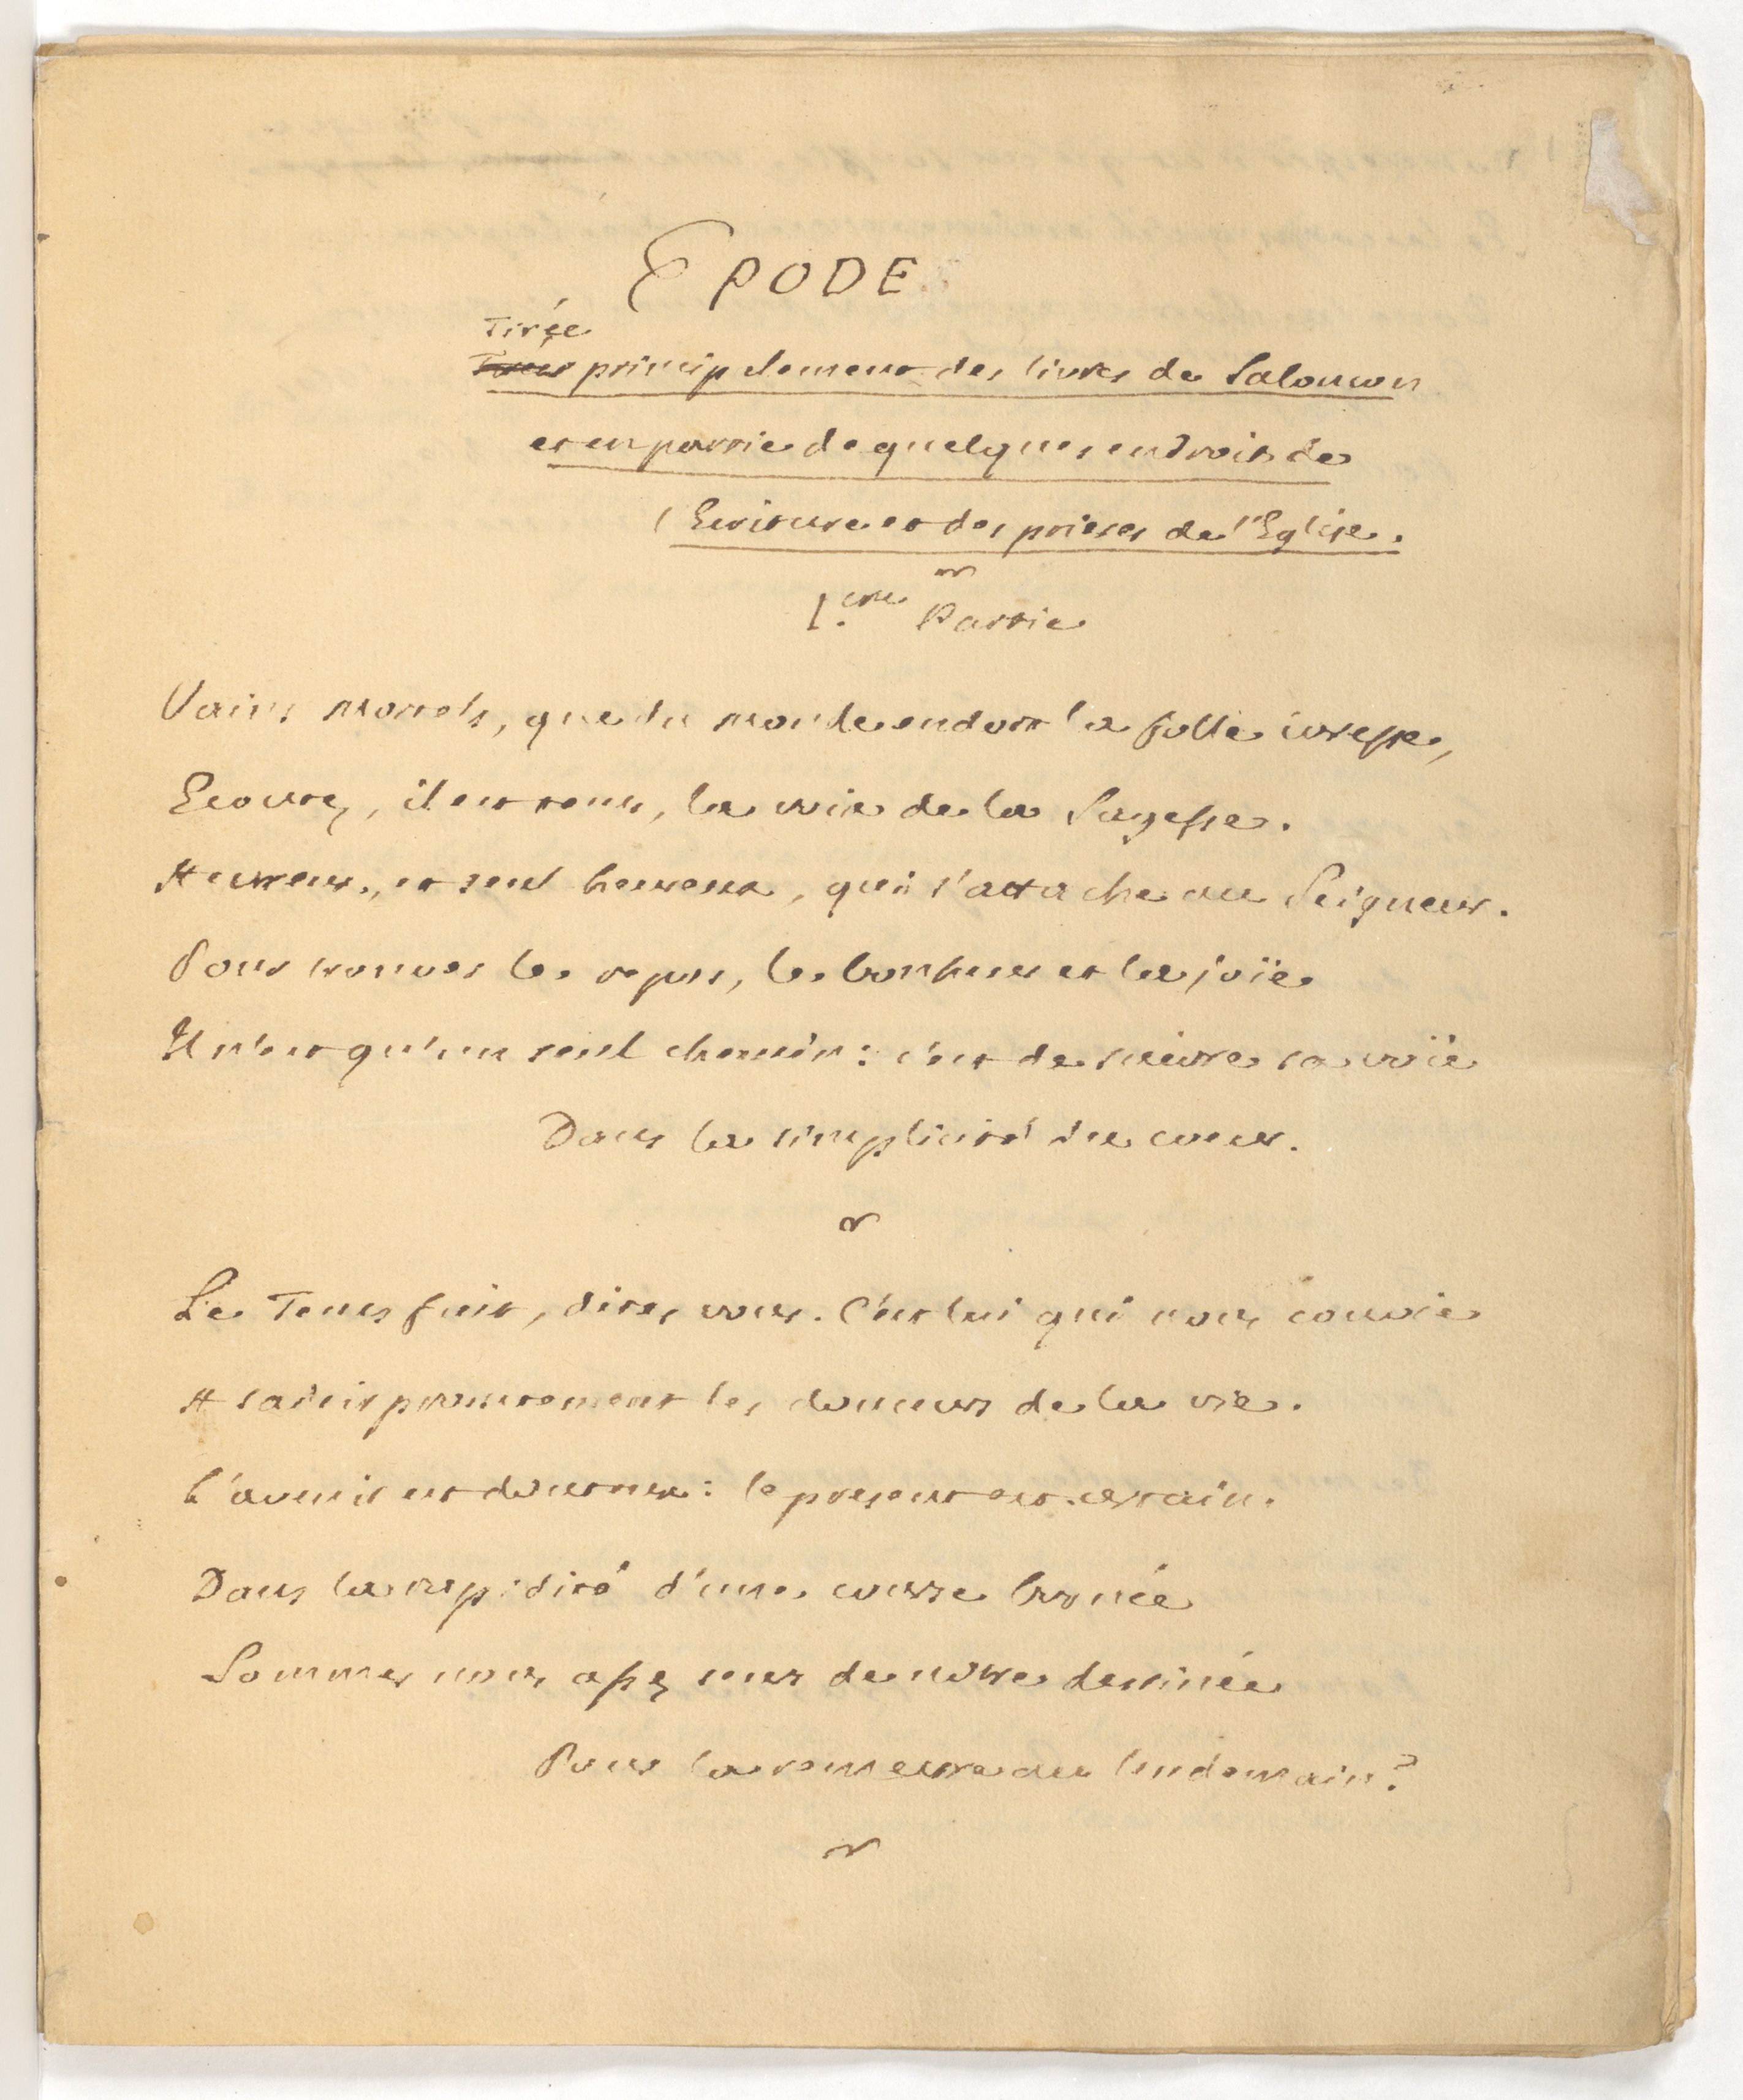 EPODE
Tirée
Tirés principalement des livres de Salomon
et en partie de quelques endroits de
l'Ecriture et des prieres de l'Eglise.
1.ere Partie
Vains mortels, que du monde endort la folle ivresse,
Ecoutez, il est tems, la voix de la Sagesse.
Heureux, et seul heureux, qui s'attache au Seigneur.
Pour trouver le repos, le bonheur et la joïe
Il n'est qu'un seul chemin : c'est de suivre sa voïe
Dans la simplicité du coeur.
Le Tems fuit, dites vous. C'est lui qui nous convie
A saisir promtement les douceurs de la vie.
L'avenir est douteux : le present est certain.
Dans la rapidité d'une course bornée
Sommes nous assez surs de nôtre destinée
Pour la remettre au lendemain ?